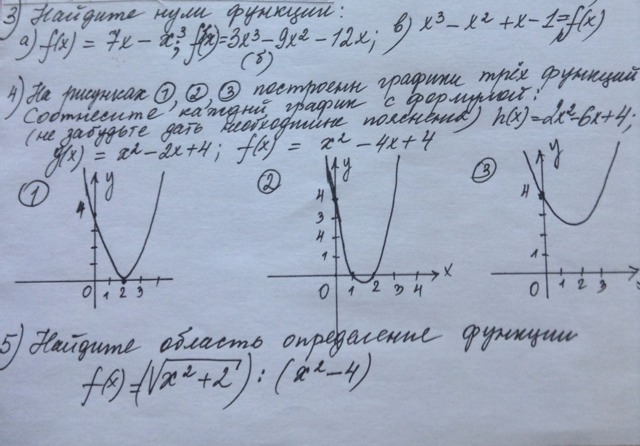 3) Найдите нули функции:
а) f(x) = 7x - x³; f(x)=3x³-9x²-12x; в) x³-x²+x-1=f(x)
(б)
4) На рисунках ①, ②, ③ построены графики трёх функций
Соотнесите каждый график с формулой:
(не забудьте дать необходимые пояснения) h(x)=2x²-6x+4;
g(x) = x²-2x+4; f(x) = x²-4x+4
① y ② y ③
4 4 3 4 1 4 1
0 1 2 3 0 1 2 3 4 x 0 1 2 3
5) Найдите область определение функции
f(x)=(√x²+2) : (x²-4)